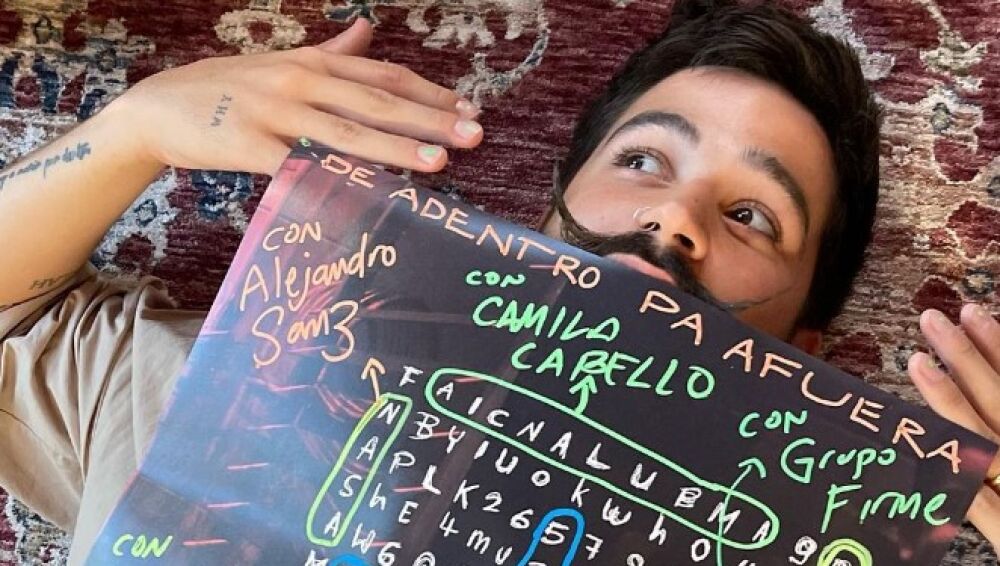 DE ADENTRO PA AFUERA
CON
Alejandro
Sanz
CON
CAMILA
CABELLO
CON
Grupo
Firme
CON
F A I C N A L U B M A 9
N B Y I U O K W h O
A P L K 2 6 5 7
S h E 4 m u
A W 6